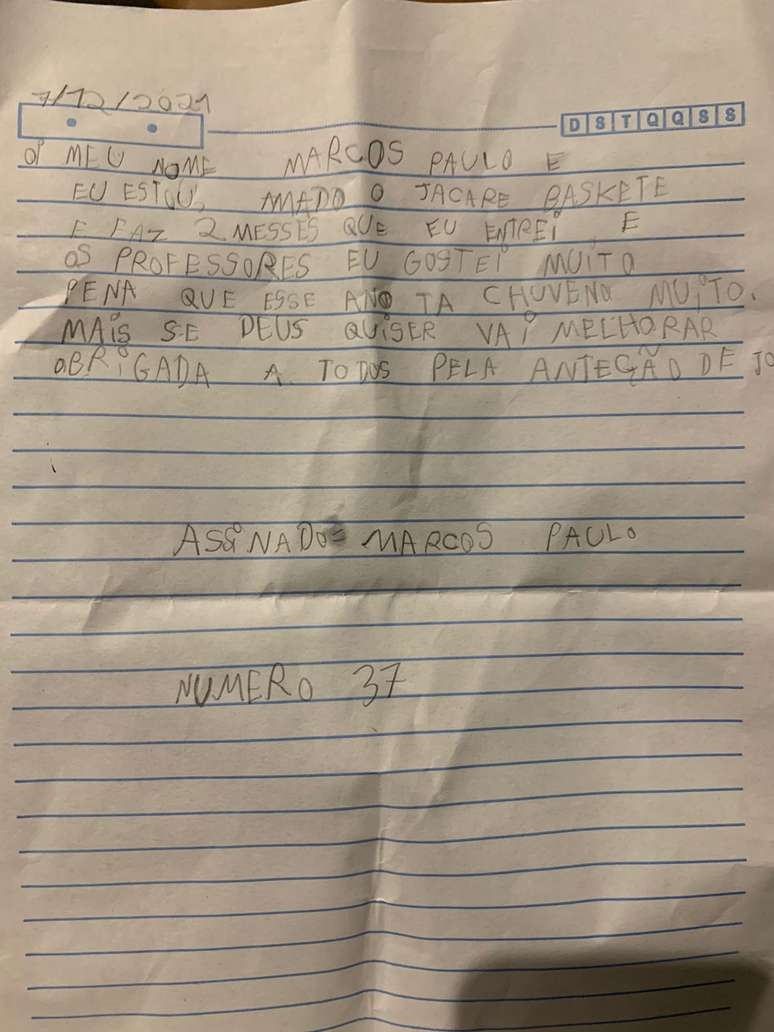 7/12/2021
D S T Q Q S S
OI MEU NOME MARCOS PAULO E
EU ESTOU, AMADO O JACARE BASKETE
E FAZ 2 MESSES QUE EU ENTREI E
OS PROFESSORES EU GOSTEI MUITO
PENA QUE ESSE ANO TA CHUVENO MUITO.
MAIS SE DEUS QUISER VAI MELHORAR
OBRIGADA A TODOS PELA ANTEÇÃO DE
ASINADO= MARCOS PAULO
NUMERO 37